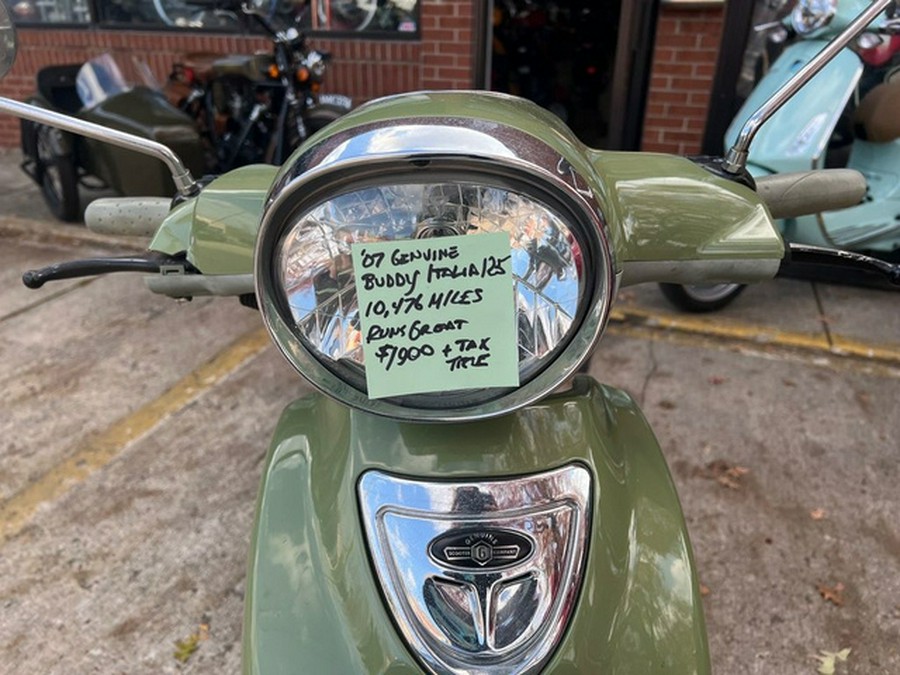 '07 GENUINE
BUDDY ITALIA 125
10,476 MILES
RUNS GREAT
$1900 + TAX
TITLE
GENUINE
G
SCOOTER COMPANY